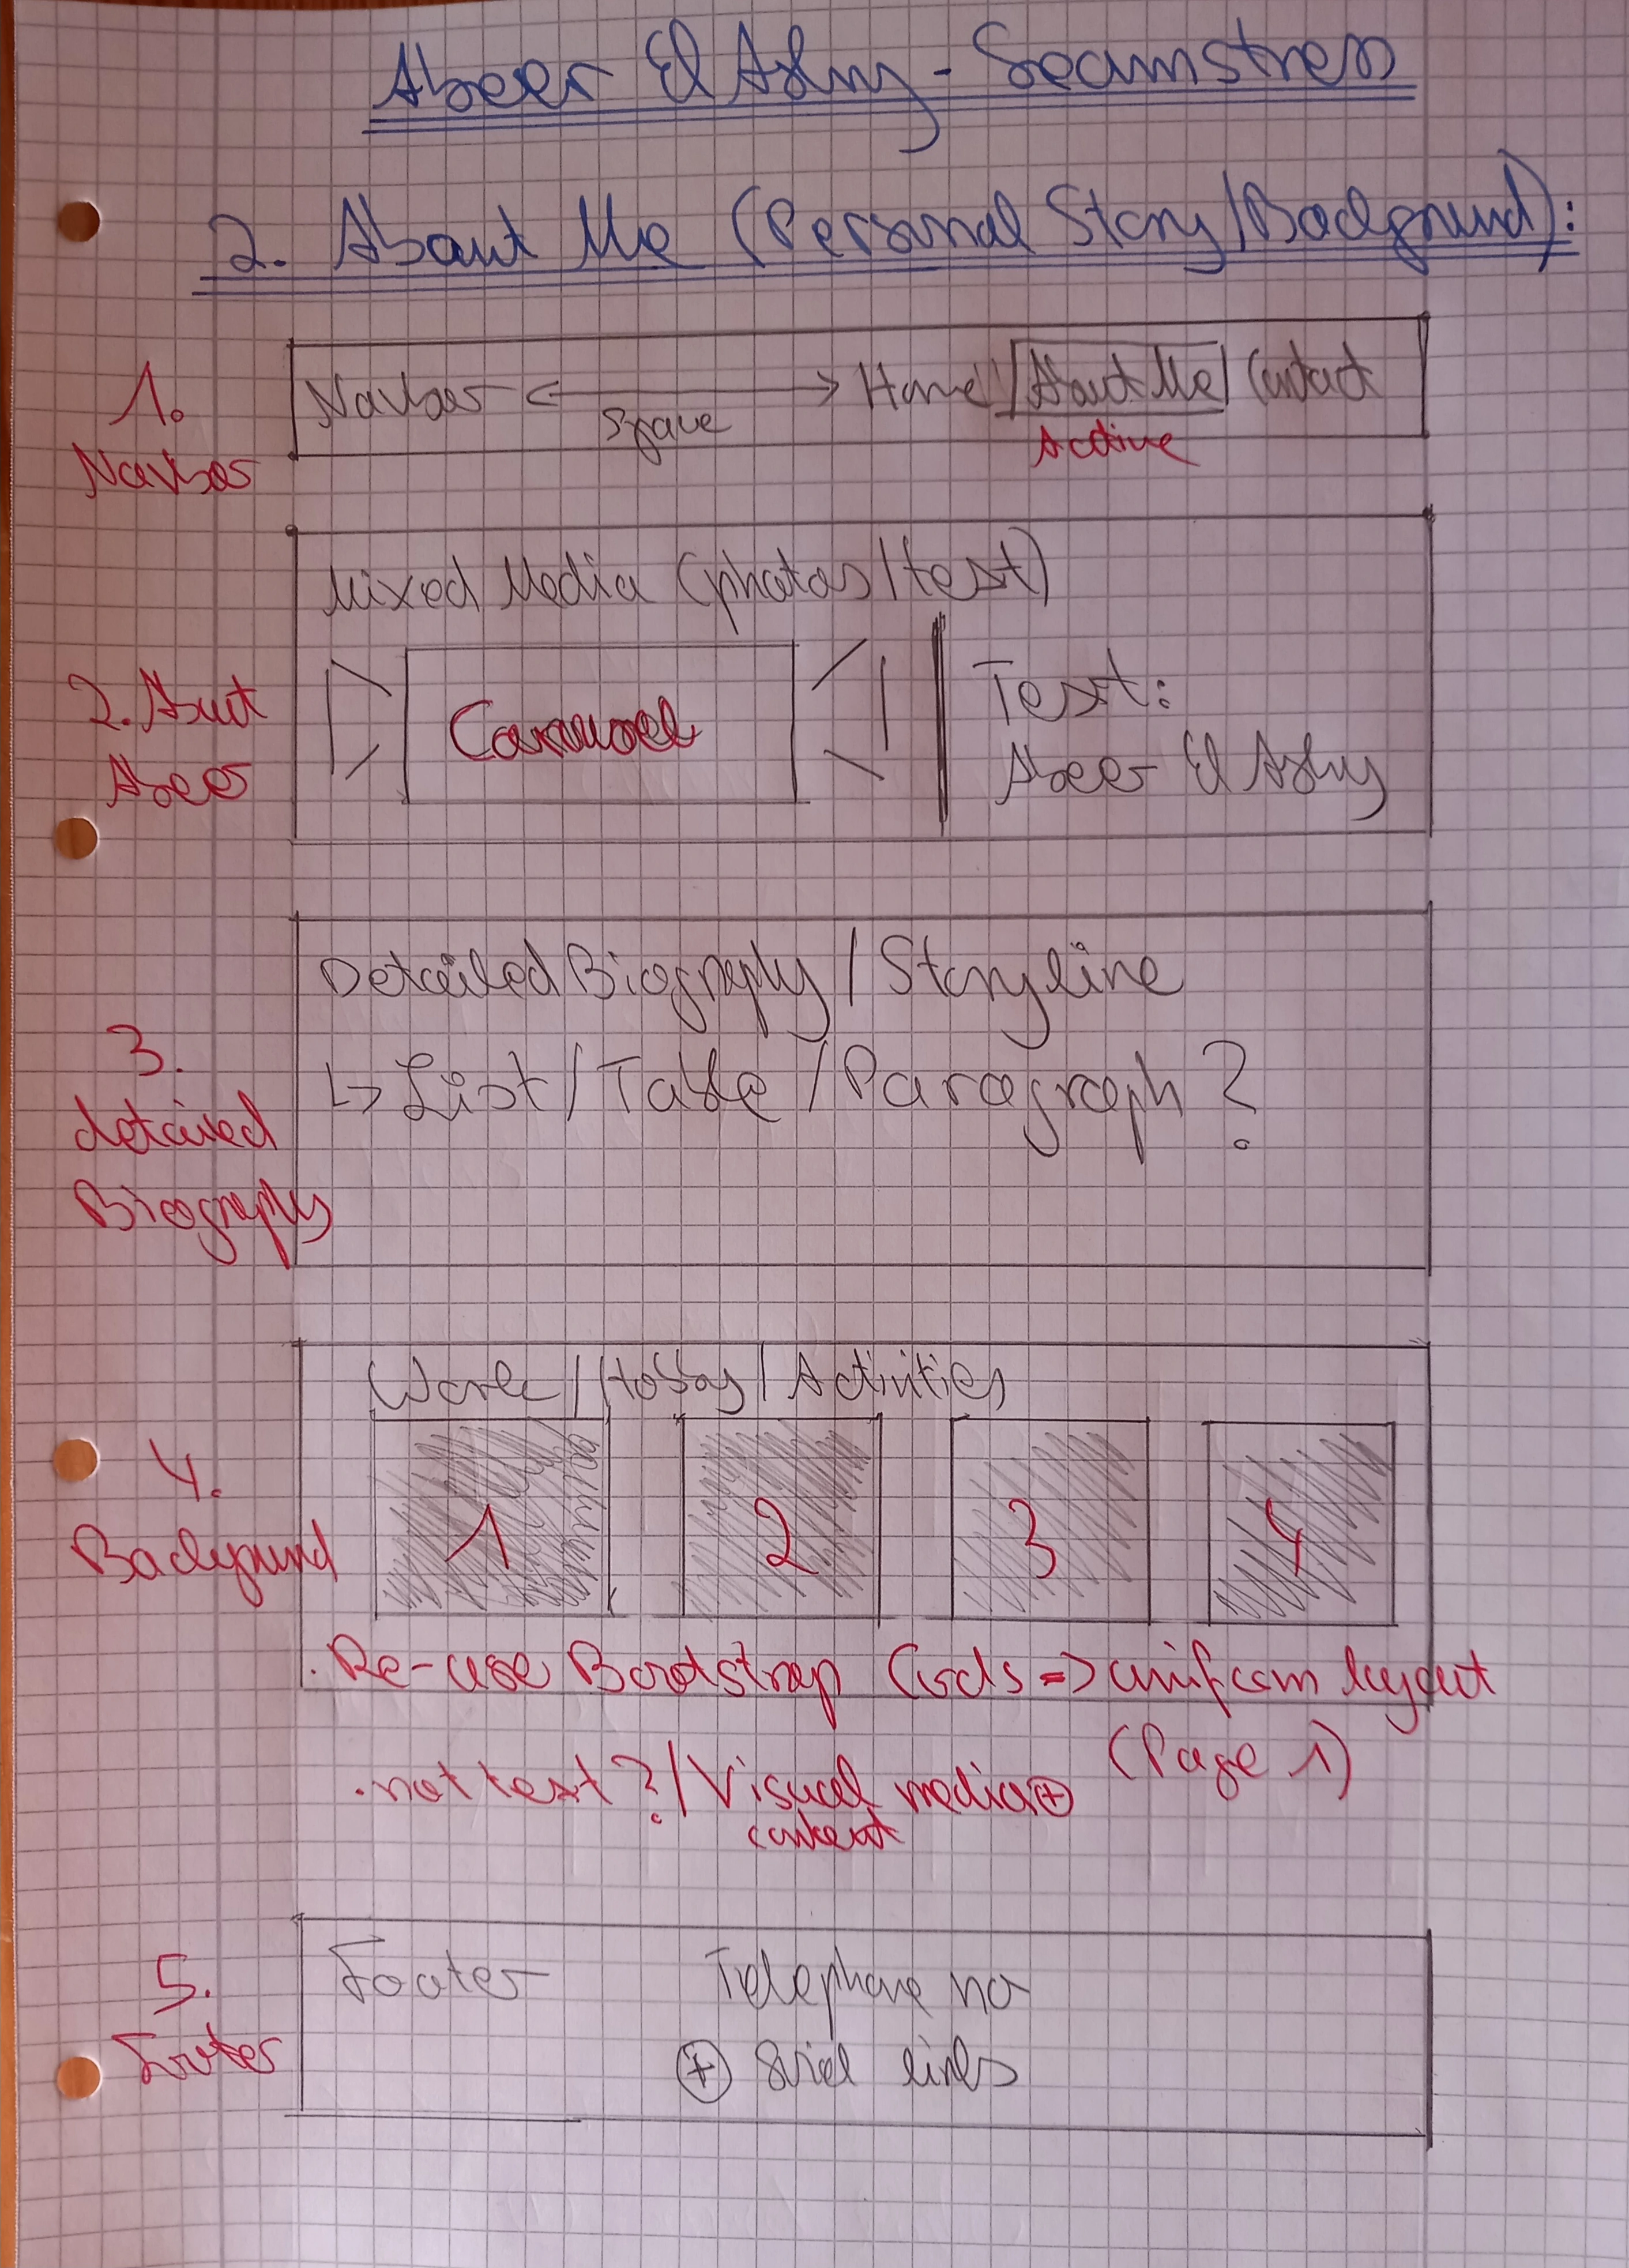 Abeer El Ashry - Seamstress
2. About Me (Personal Story/Background):
1.
Navbar
Navbar <- Space -> Home / About Me / Contact
Active
2. About
Abeer
Mixed Media (photos/text)
Carousel
Text:
Abeer El Ashry
3.
detailed
Biography
Detailed Biography / Storyline
↳ List / Table / Paragraph ?
4.
Background
Work / Hobby / Activities
1 2 3 4
. Re-use Bootstrap Cards => uniform layout
(Page 1)
. not text ? / Visual media ⊕
content
5.
Footer
Footer Telephone no
⊕ Social links